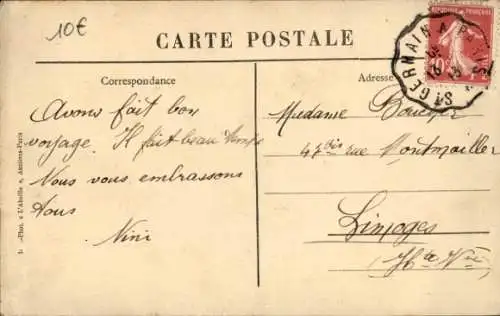 10€
CARTE POSTALE
Correspondance
Adresse
Avons fait bon
voyage. Il fait beau temps
Nous vous embrassons
tous
Nini
Madame
47 bis rue Montmailler
Limoges
Hte Vne
Phot. « L'Abeille », Asnières-Paris
ST GERMAIN A PARIS
10